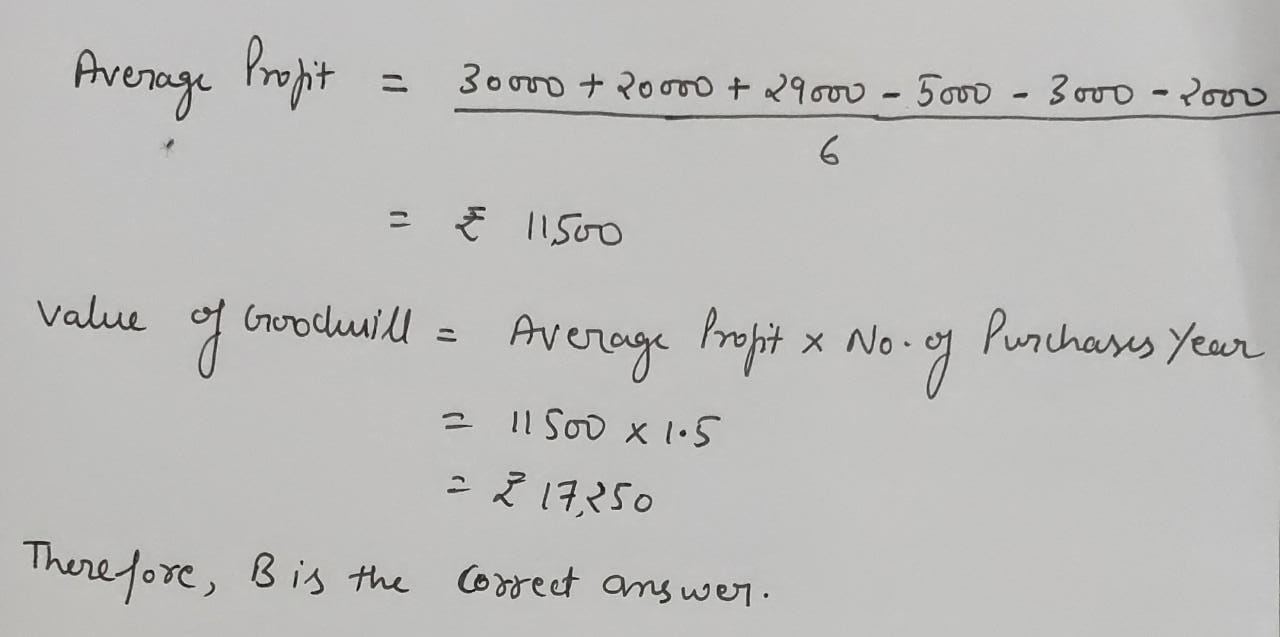 Average Profit = 30000 + 20000 + 29000 - 5000 - 3000 - 2000
6
= ₹ 11,500
Value of Goodwill = Average Profit x No. of Purchases Year
= 11500 x 1.5
= ₹ 17,250
Therefore, B is the correct answer.